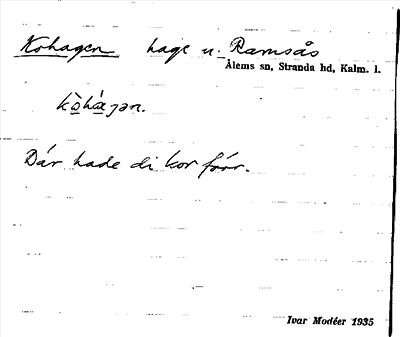 Kohagen hage u. Ramsås
Ålems sn, Stranda hd, Kalm. l.
kò̱há̱gən.
Där hade di kor förr.
Ivar Modéer 1935